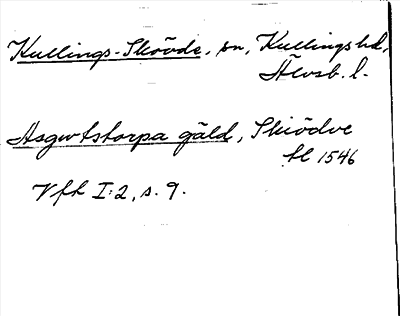 Kullings-Skövde, sn, Kullings hd,
Älvsb. l.
Asgwtstorpa gäld, Skiödve
tl 1546
Vfh I:2, s. 9.